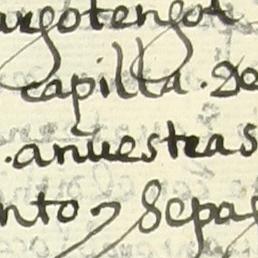 argotengot
capilla. De
. anuestras
nto y sepa